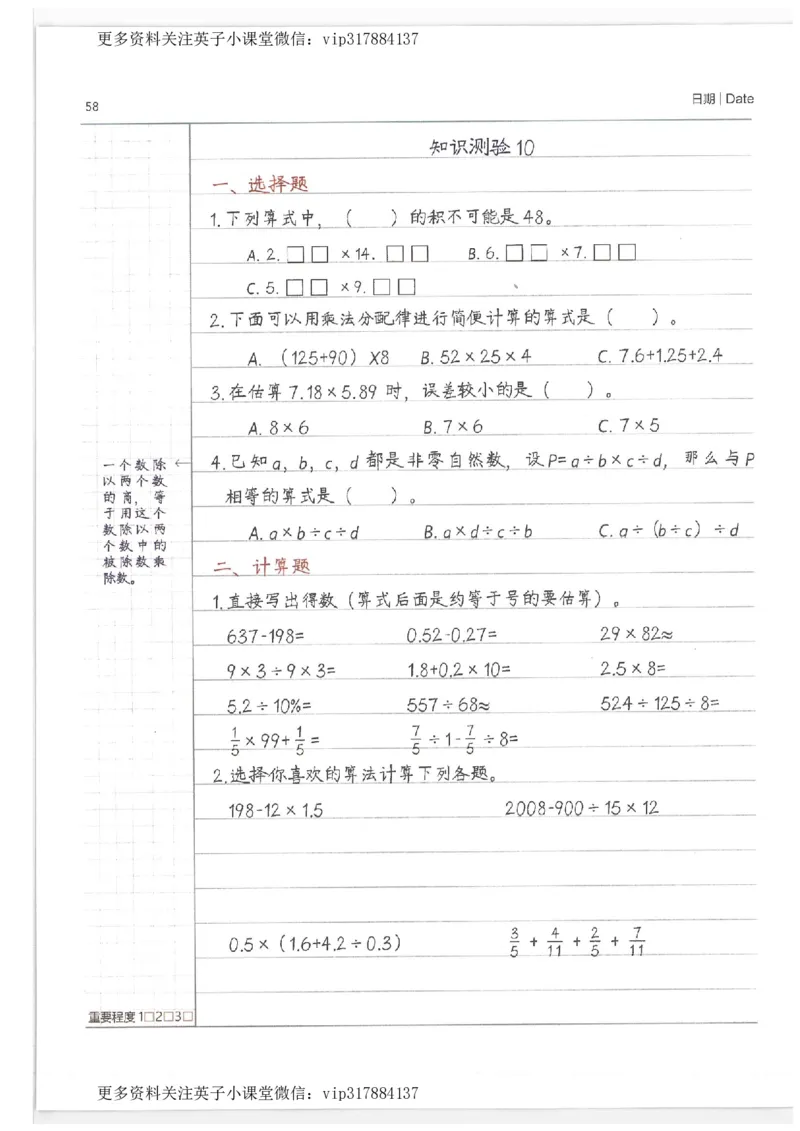 更多资料关注英子小课堂微信：vip317884137
58
日期|Date
知识测验10
一、选择题
1.下列算式中，（ ）的积不可能是48。
A.2.□□×14.□□ B.6.□□×7.□□
C.5.□□×9.□□
2.下面可以用乘法分配律进行简便计算的算式是（ ）。
A.（125+90）×8 B.52×25×4 C.7.6+1.25+2.4
3.在估算7.18×5.89时，误差较小的是（ ）。
A.8×6 B.7×6 C.7×5
一个数除←
以两个数
的商，等
于用这个
数除以两
个数中的
被除数乘
除数。
4.已知a，b，c，d都是非零自然数，设P=a÷b×c÷d，那么与P
相等的算式是（ ）。
A.a×b÷c÷d B.a×d÷c÷b C.a÷（b÷c）÷d
二、计算题
1.直接写出得数（算式后面是约等于号的要估算）。
637-198= 0.52-0.27= 29×82≈
9×3÷9×3= 1.8+0.2×10= 2.5×8=
5.2÷10%= 557÷68≈ 524÷125÷8=
1/5×99+1/5= 7/5÷1-7/5÷8=
2.选择你喜欢的算法计算下列各题。
198-12×1.5 2008-900÷15×12
0.5×（1.6+4.2÷0.3） 3/5+4/11+2/5+7/11
重要程度1□2□3□
更多资料关注英子小课堂微信：vip317884137